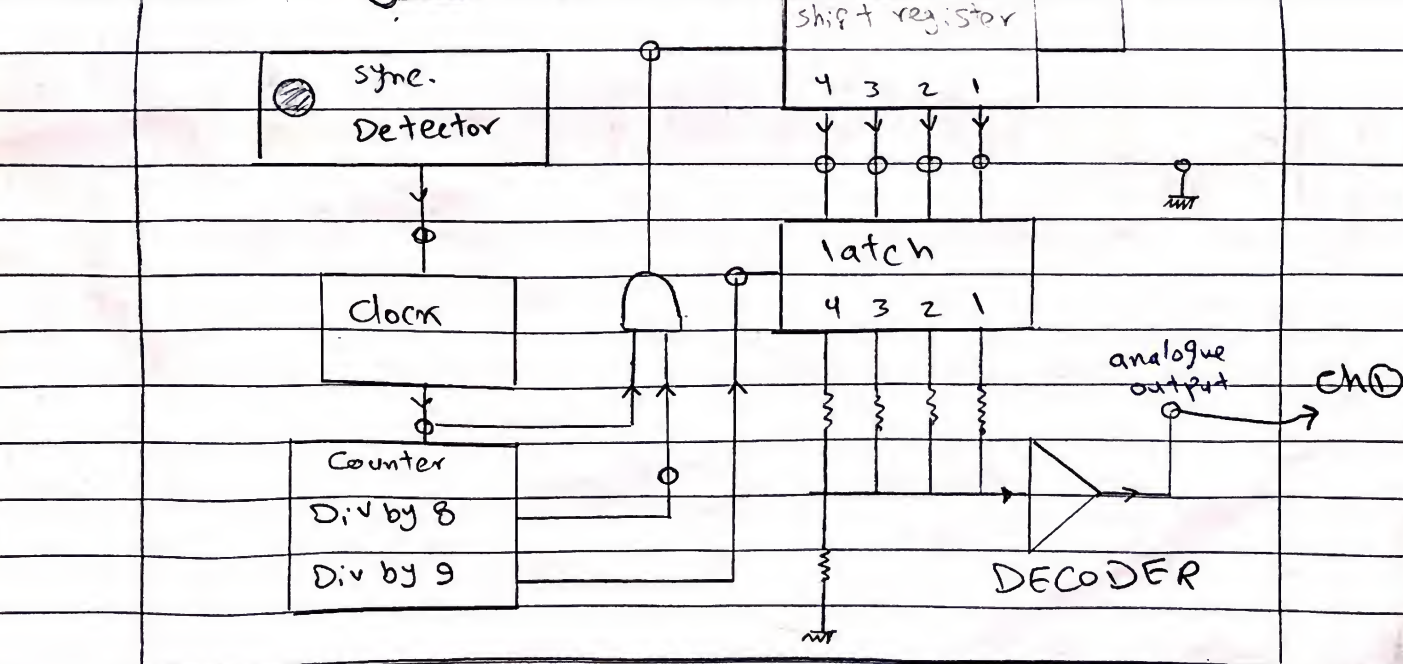 shift register
4 3 2 1
sync.
Detector
latch
4 3 2 1
Clock
analogue
output
Ch①
Counter
Div by 8
Div by 9
DECODER